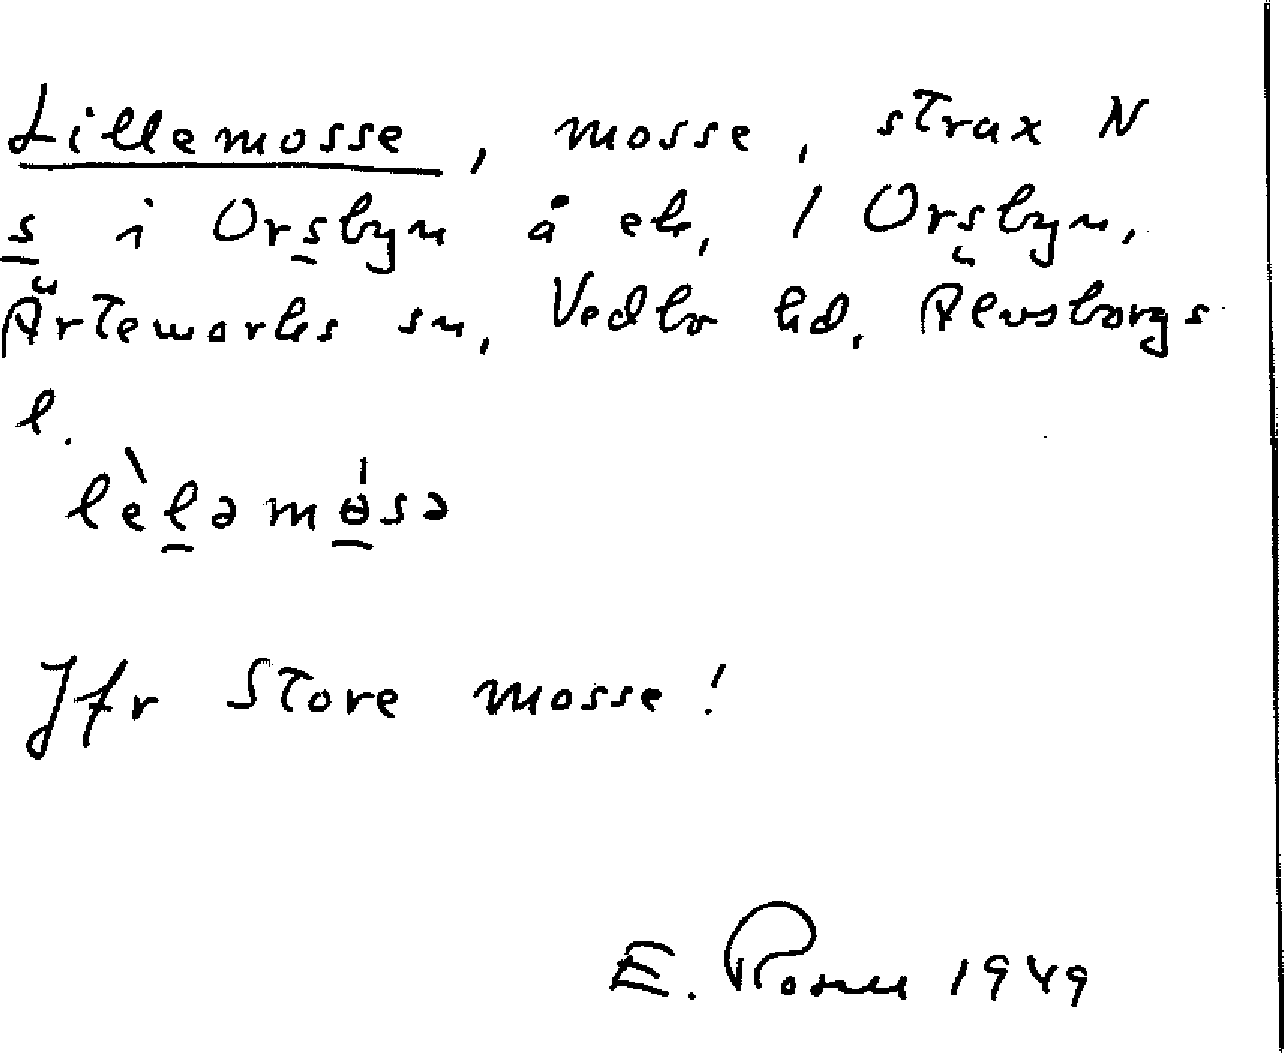 Lillemosse, mosse, strax N
s i Orsbyn å ek, 1 Orsbyn,
Ärtemarks sn, Vedbo hd, Älvsborgs
l.
lèləmɵ́sə
Jfr Store mosse!
E. 1949